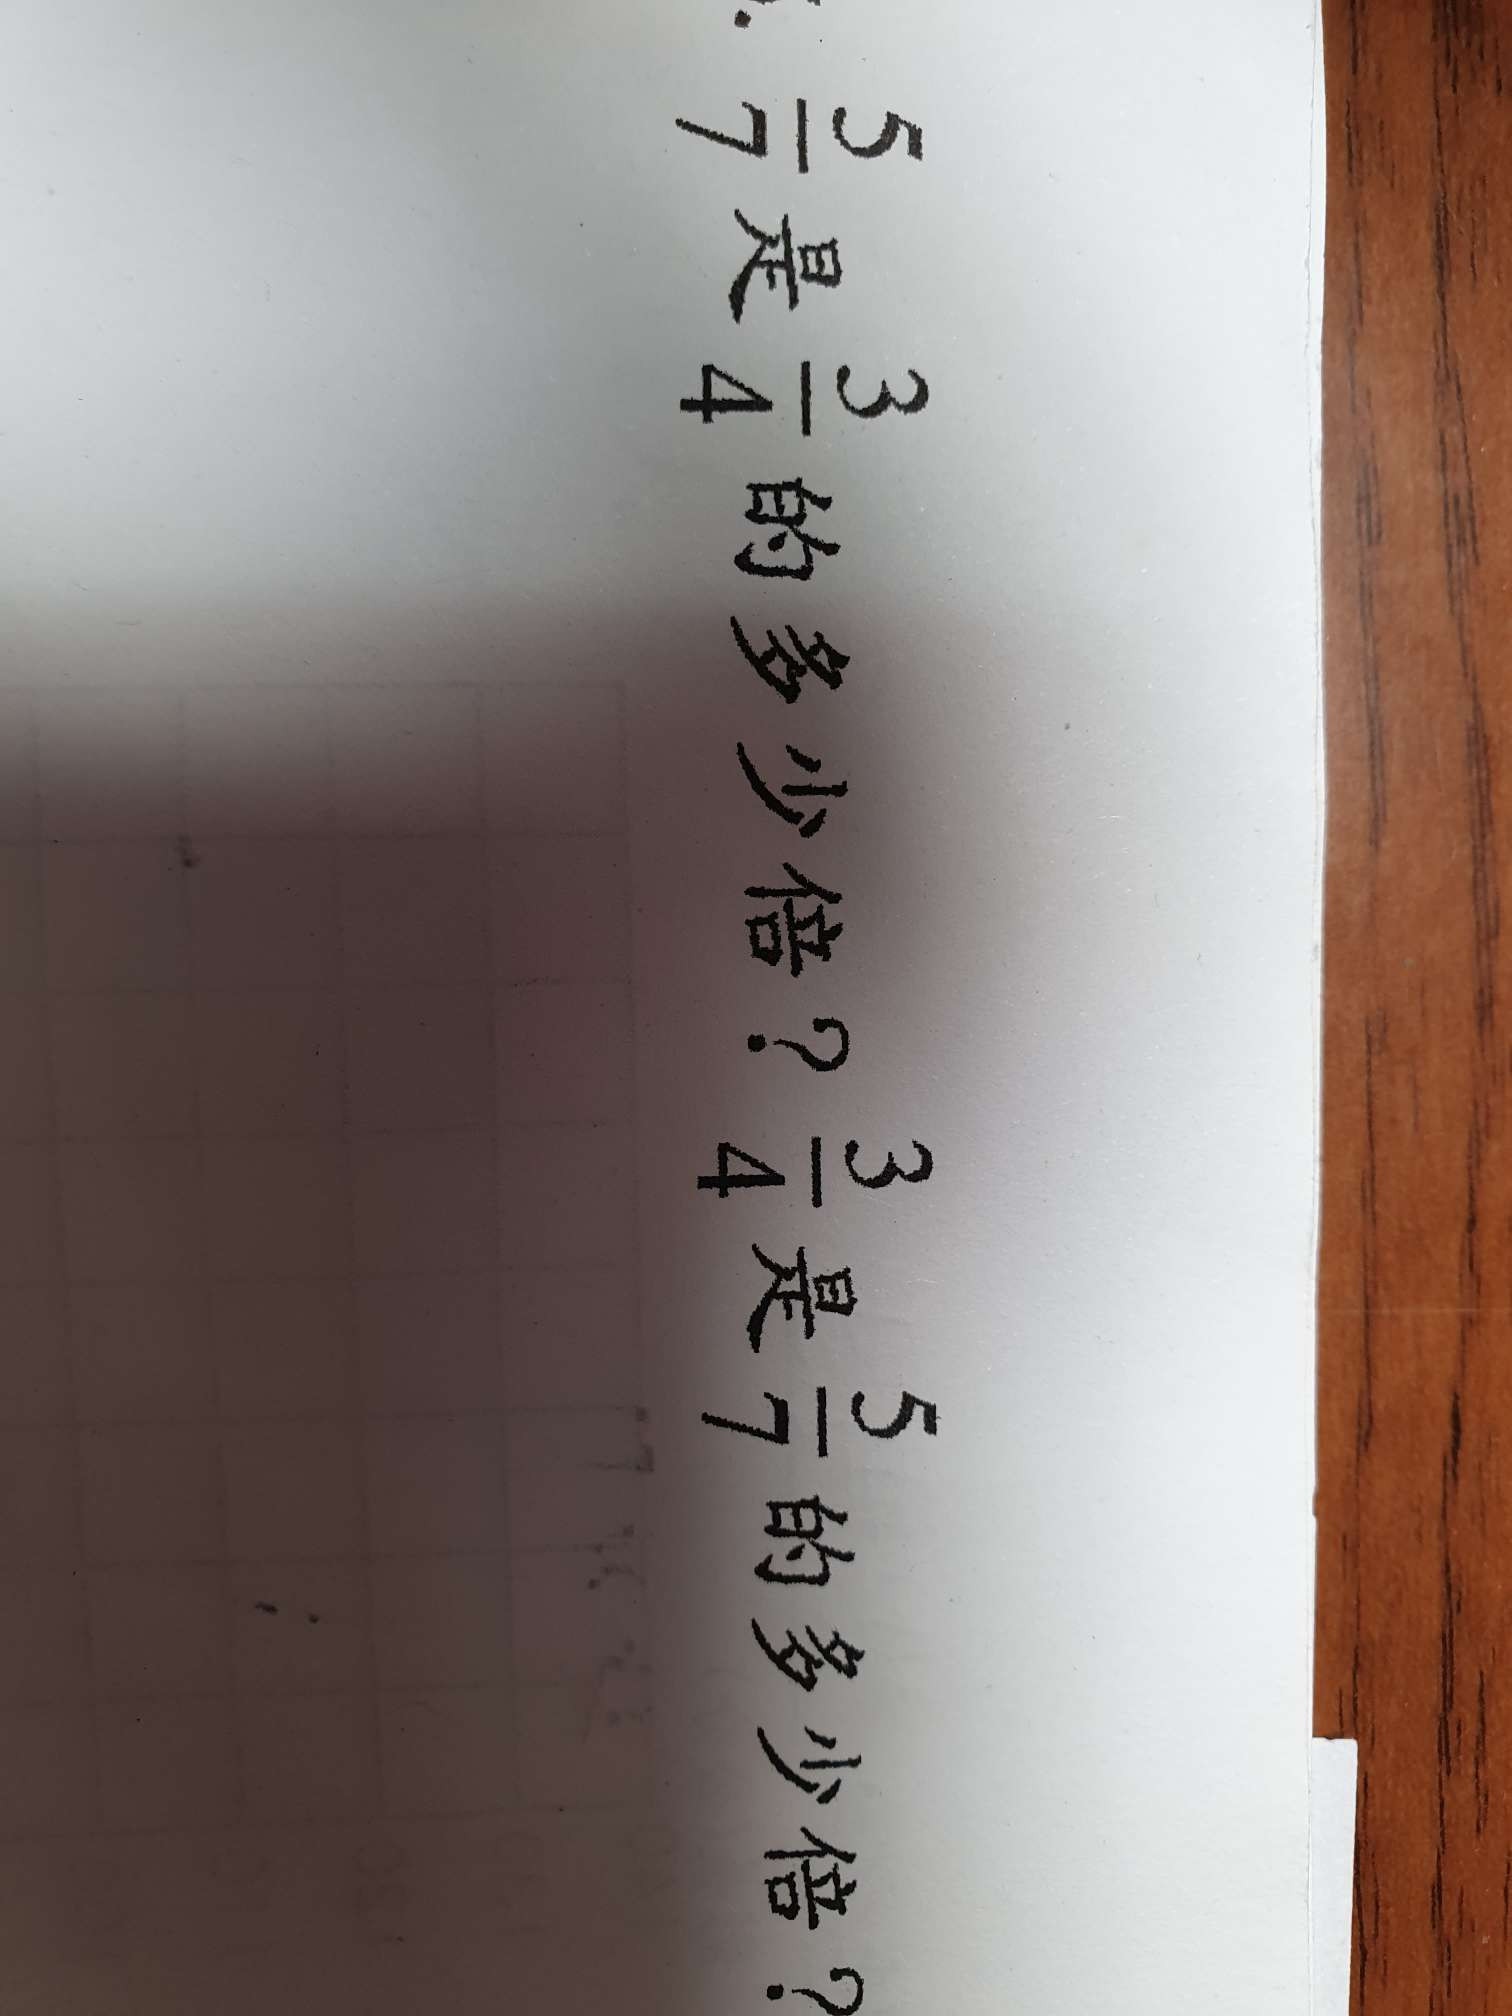 5/7是3/4的多少倍？3/4是5/7的多少倍？